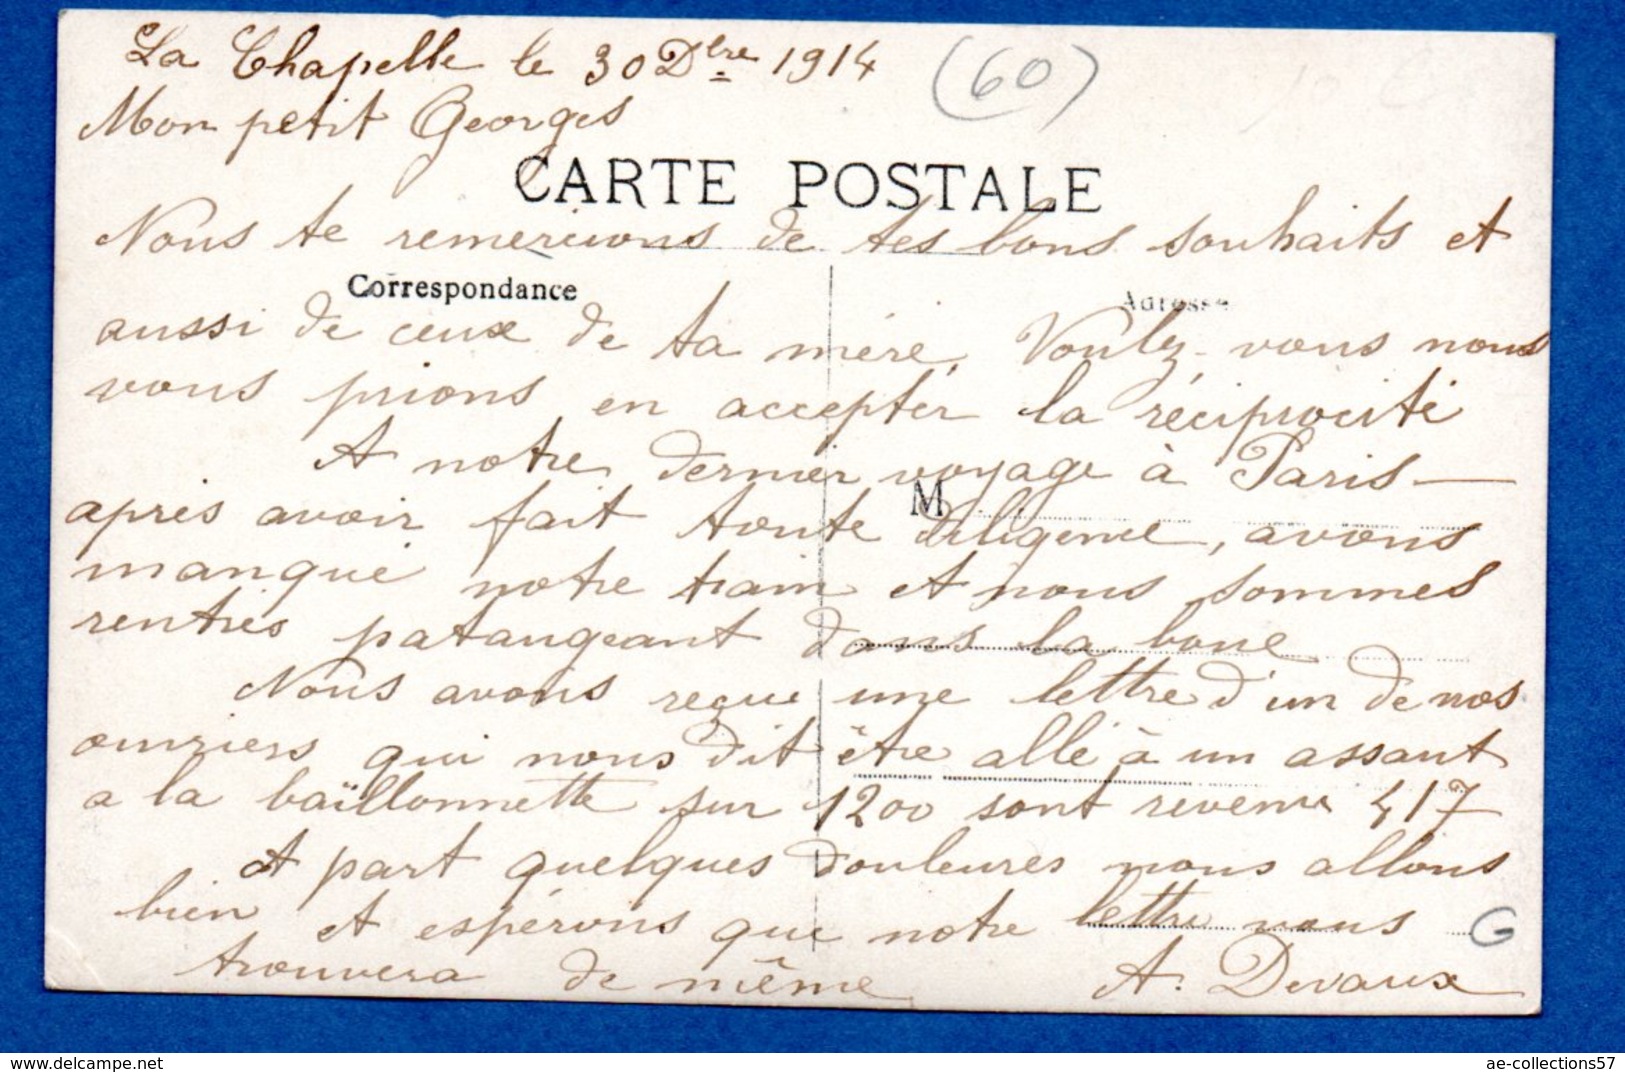 La Chapelle le 30 Dbre 1914
(60)
Mon petit Georges
CARTE POSTALE
Nous te remercions de tes bons souhaits et
Correspondance
Adresse
aussi de ceux de ta mère, Voulez-vous nous
vous prions en accepter la réciprocité
A notre dernier voyage à Paris —
M
après avoir fait toute diligence, avons
manqué notre train et nous sommes
rentrés patangeant dans la boue
Nous avons reçue une lettre d'un de nos
ouvriers qui nous dit être allé à un assaut
a la baïllonnette sur 1200 sont revenu 417
A part quelques douleures nous allons
bien et espérons que notre lettre vous
G
trouvera de même A. Devaux
ae-collections57